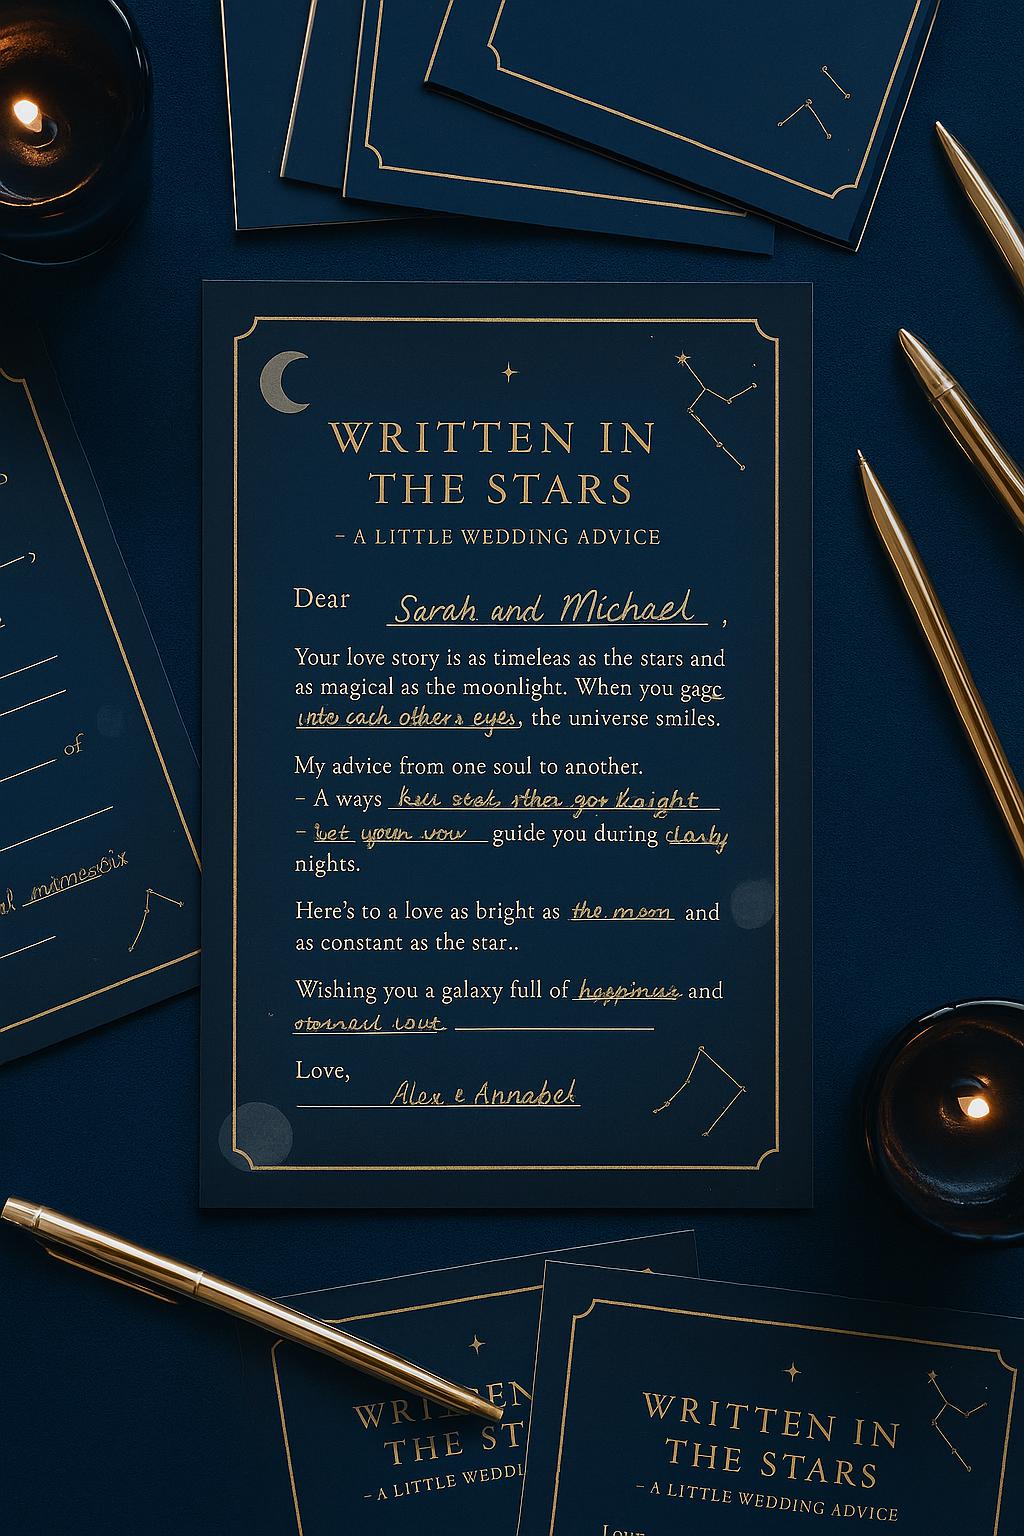 WRITTEN IN
THE STARS
– A LITTLE WEDDING ADVICE
Dear Sarah and Michael,
Your love story is as timeleas as the stars and
as magical as the moonlight. When you gage
into each others eyes, the universe smiles.
My advice from one soul to another.
– A ways
– guide you during
nights.
Here's to a love as bright as the moon and
as constant as the star..
Wishing you a galaxy full of and
Love,
Alex & Annabel
of
WRITTEN
THE ST
– A LITTLE WEDDI
WRITTEN IN
THE STARS
– A LITTLE WEDDING ADVICE